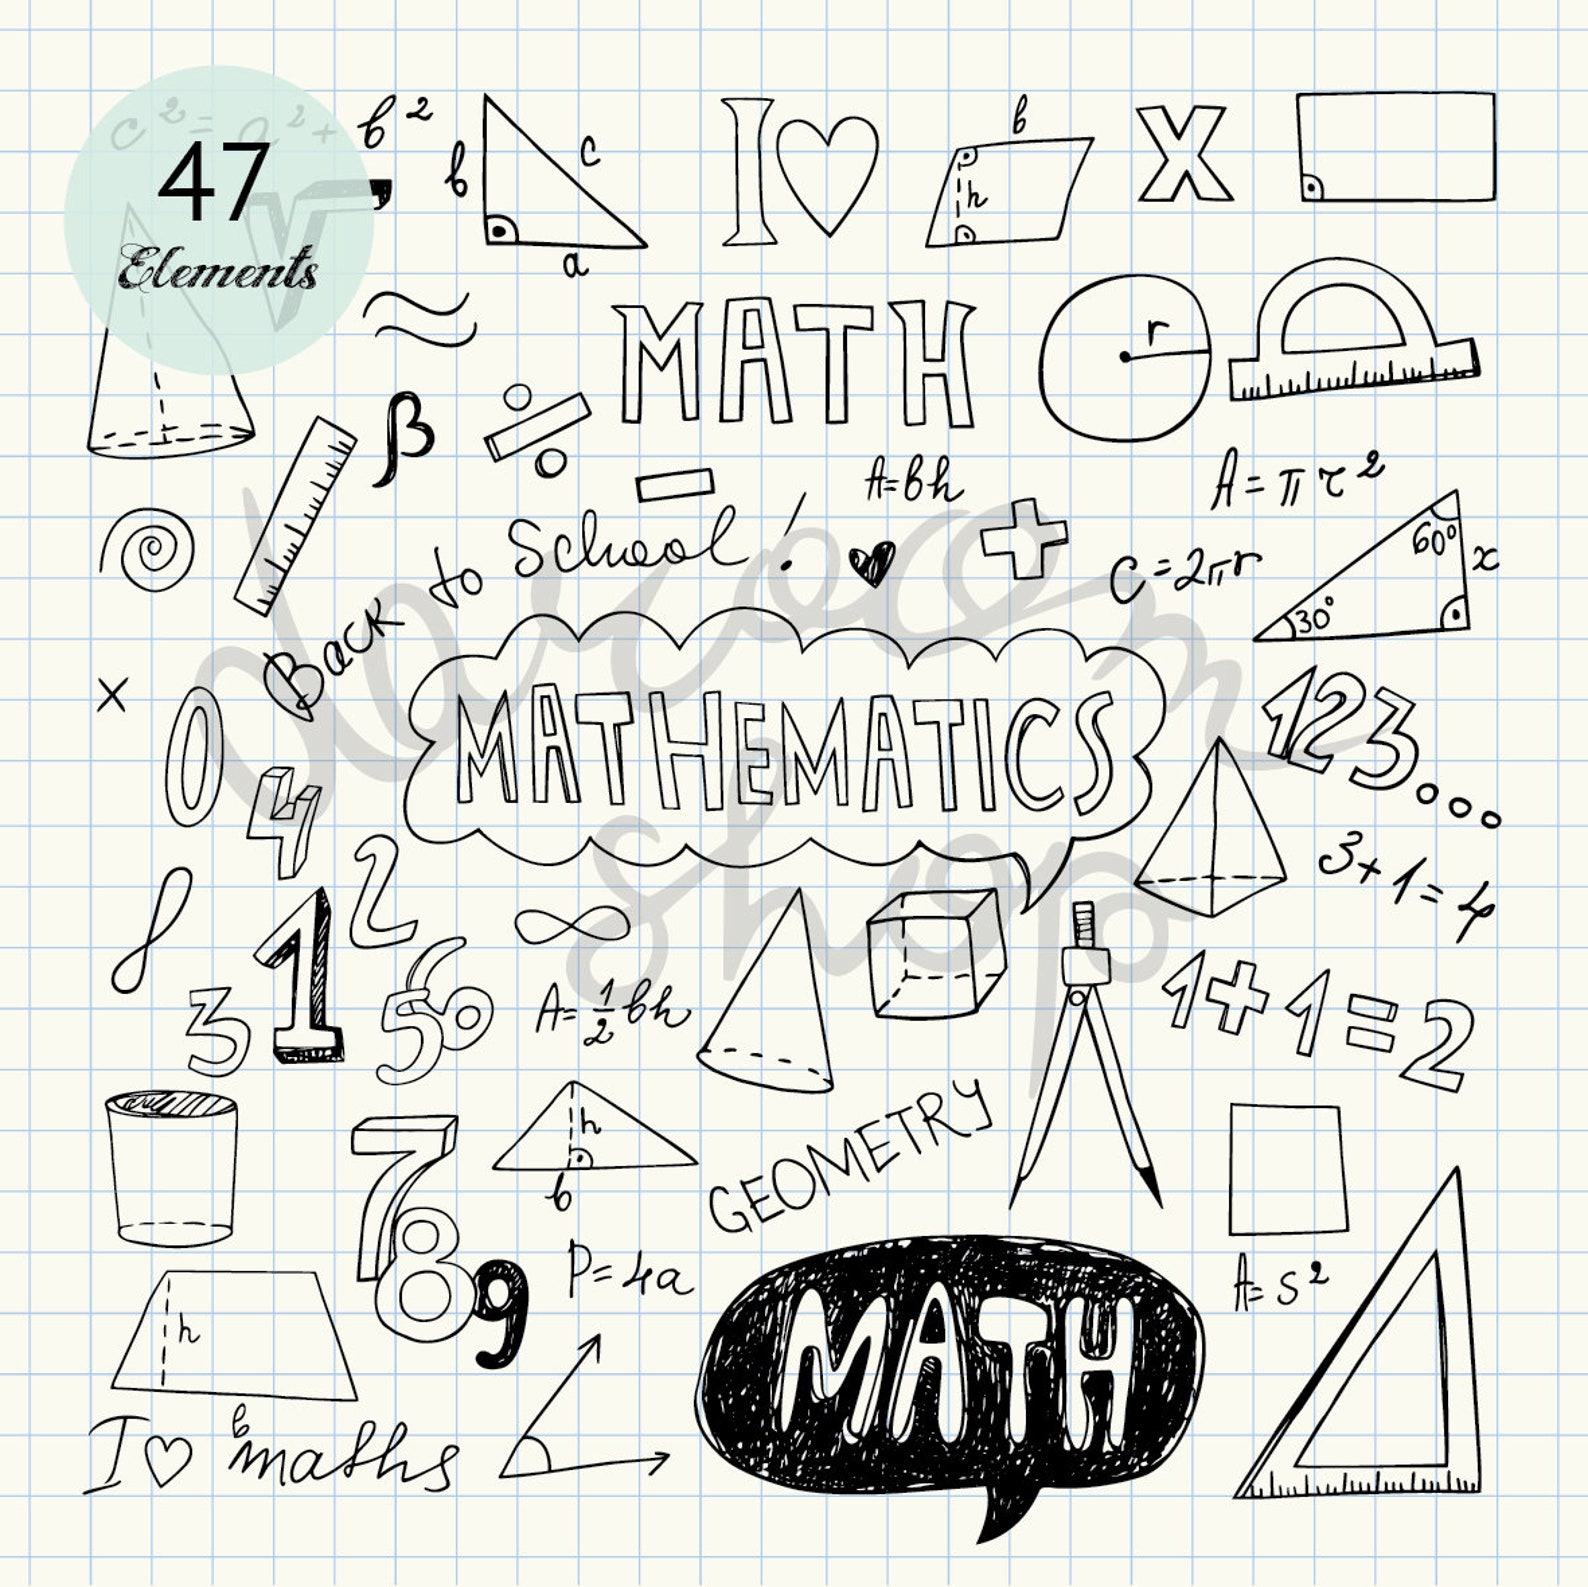 c² = a² + b²
47
Elements
b
c
a
I ♡
b
h
X
≈
MATH
r
β
÷
−
A=bh
A = πr²
Back to School!
+
C = 2πr
60°
x
30°
x
0
MATHEMATICS
123...
4
2
3+1=4
1
∞
3
5
6
A=½bh
1+1=2
h
b
GEOMETRY
7
8
9
P=4a
A=S²
h
b
MATH
I ♡ maths
daroom
shop